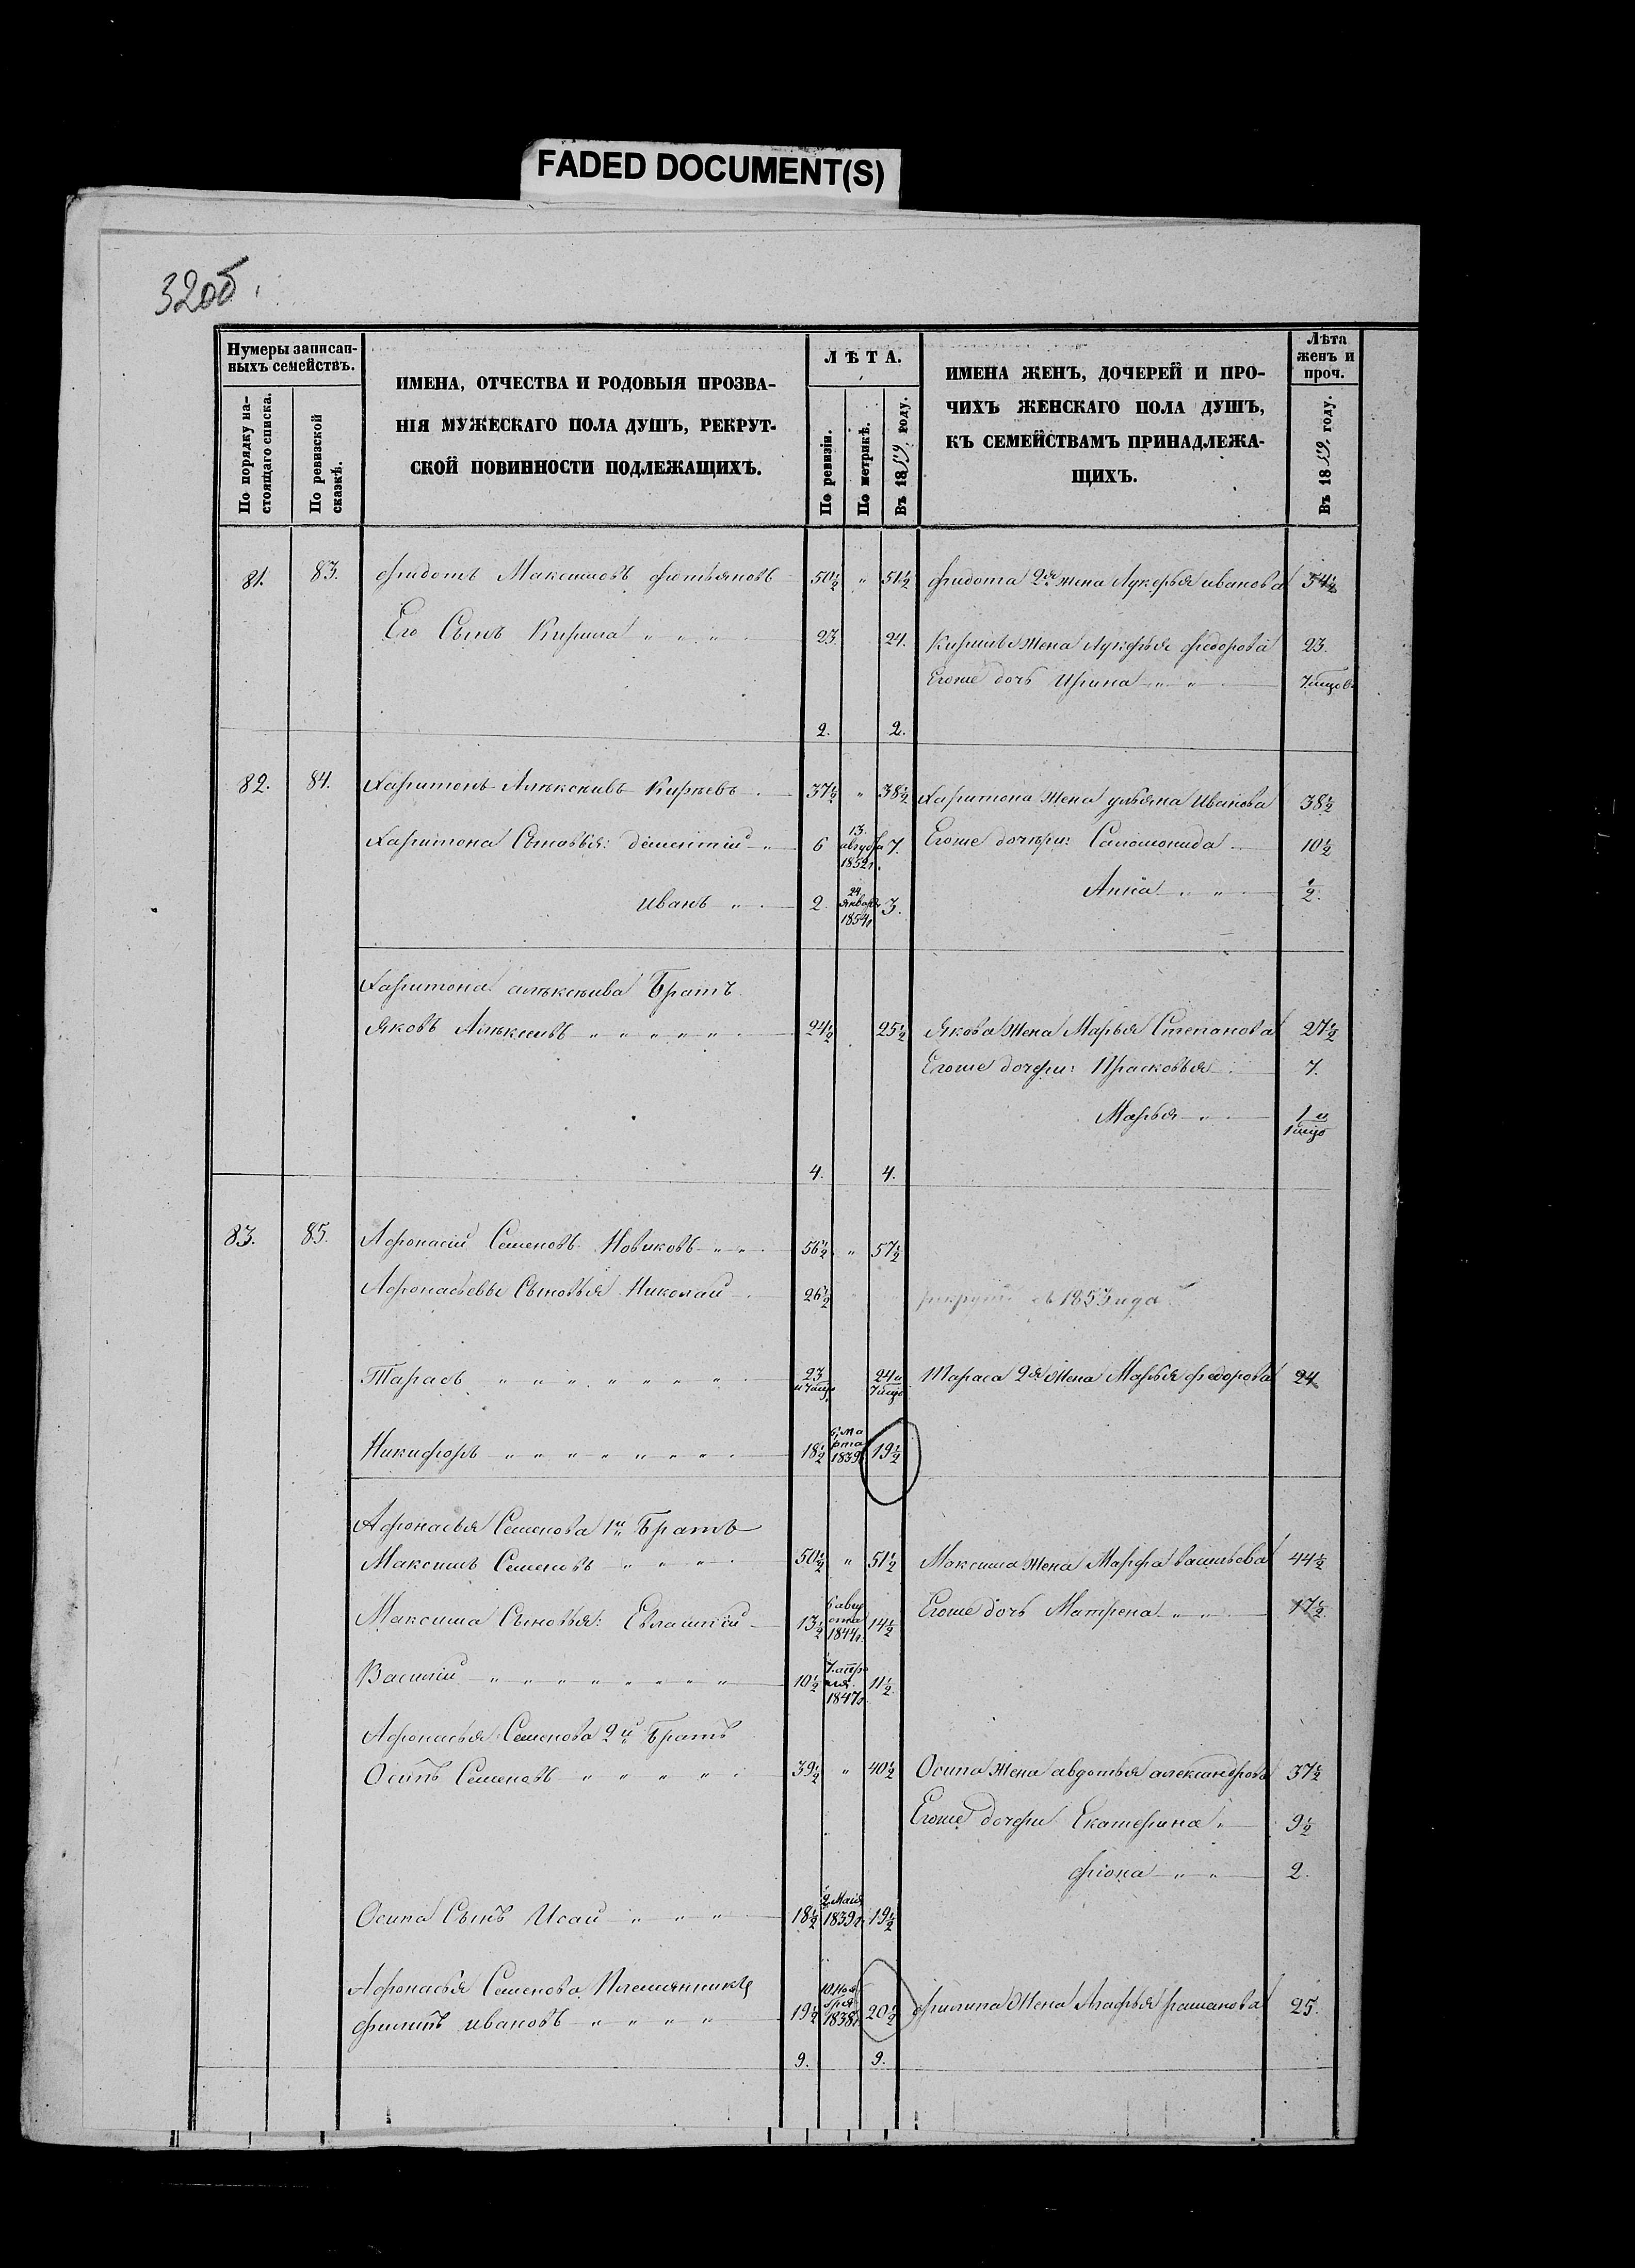 FADED DOCUMENT(S)
32об.
Нумеры записан-
ныхъ семействъ.
По порядку на-
стоящаго списка.
По ревизской
сказкѣ.
ИМЕНА, ОТЧЕСТВА И РОДОВЫЯ ПРОЗВА-
НІЯ МУЖЕСКАГО ПОЛА ДУШЪ, РЕКРУТ-
СКОЙ ПОВИННОСТИ ПОДЛЕЖАЩИХЪ.
ЛѢТА.
По ревизіи.
По метрикѣ.
Въ 1859. году.
ИМЕНА ЖЕНЪ, ДОЧЕРЕЙ И ПРО-
ЧИХЪ ЖЕНСКАГО ПОЛА ДУШЪ,
КЪ СЕМЕЙСТВАМЪ ПРИНАДЛЕЖА-
ЩИХЪ.
Лѣта
женъ и
проч.
Въ 1859. году.
81. 83. Фидотъ Максимовъ 50½ " 51½ Фидота 2я жена Лукерья иванова 54½
Его Сынъ Кирила " " " 23. 24. Кирилы жена Лукерья федорова 23.
Егоже дочь Ирина " "
2. 2.
82. 84. Харитонъ Алексеивъ Киреевъ 37½ " 38½ Харитона жена ульяна Иванова 38½
Харитона Сыновья: дементій " 6 13. августа 1852г. 7. Егоже дочери: Саломонида 10½
иванъ " 2. 24. января 1854г. 3. Анна " " ½.
Харитона алексеива Братъ
Яковъ Алексеивъ " " " " " 24½ 25½ Якова жена Марья Степанова 27½
Егоже дочери: Прасковья 7.
Марья " 1 и
4. 4.
83. 85. Афонасій Семеновъ Новиковъ " " 56½ " 57½
Афонасьевы Сыновья Николай 26½ рекрутъ съ 1853 года
Тарасъ " " " " " " " 23 24 и Тараса 2я жена Марья федорова 24
Никифоръ " " " " " " " " 18½ 6 марта 1839г. 19½
Афонасья Семенова 1й Братъ
Максимъ Семеновъ " " " 50½ " 51½ Максима жена Марфа васильева 44½
Максима Сыновья: Евлампій 13½ 1844г. 14½ Егоже дочь Матрена " " 17½
Василій " " " " " " " " 10½ 7. апреля 1847г. 11½
Афонасья Семенова 2й Братъ
Осипъ Семеновъ " " " " " 39½ " 40½ Осипа жена авдотья александрова 37½
Егоже дочери Екатерина 9½
фіона " " 2.
Осипа Сынъ Исай " " " 18½ 2 Мая 1839г. 19½
Афонасья Семенова Племянникъ
филипъ ивановъ " " " " 19½ 10 ноября 1838г. 20½ филипа жена Агафья 25.
9. 9.